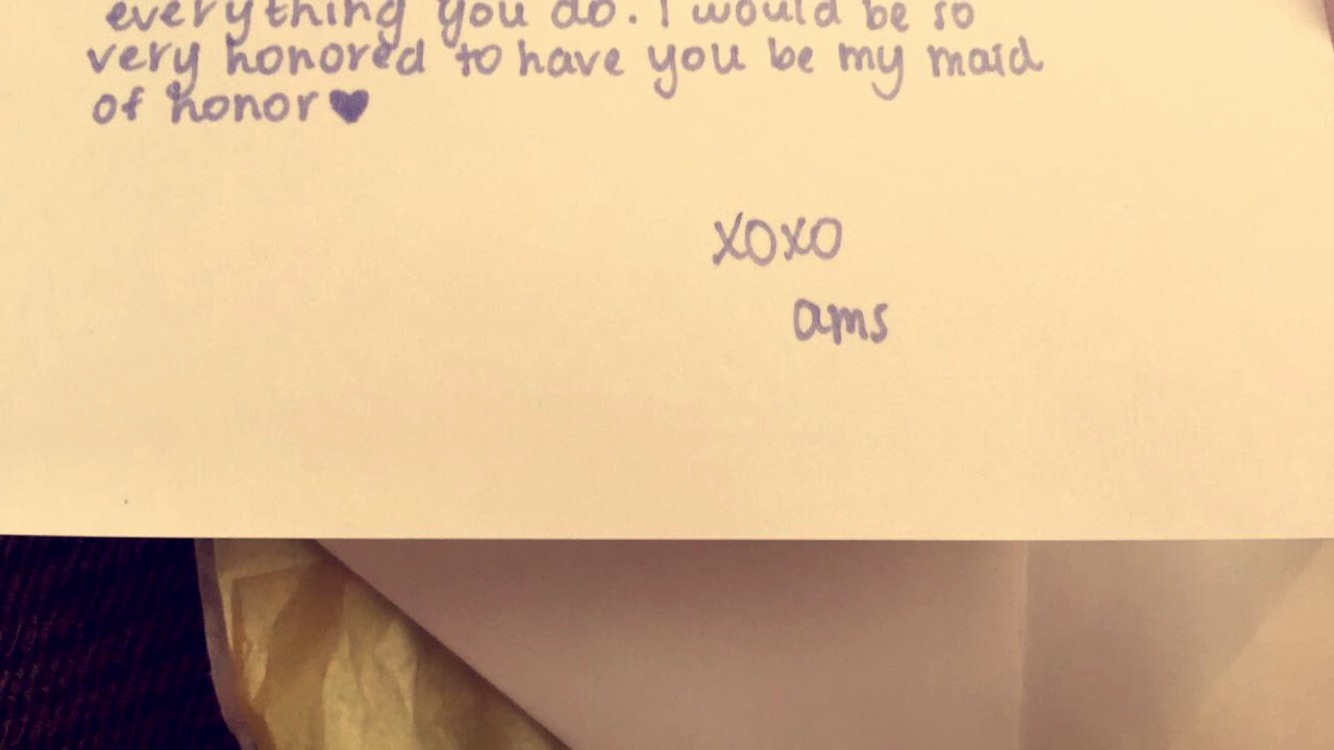 everything you do. I would be so
very honored to have you be my maid
of honor♥
xoxo
ams